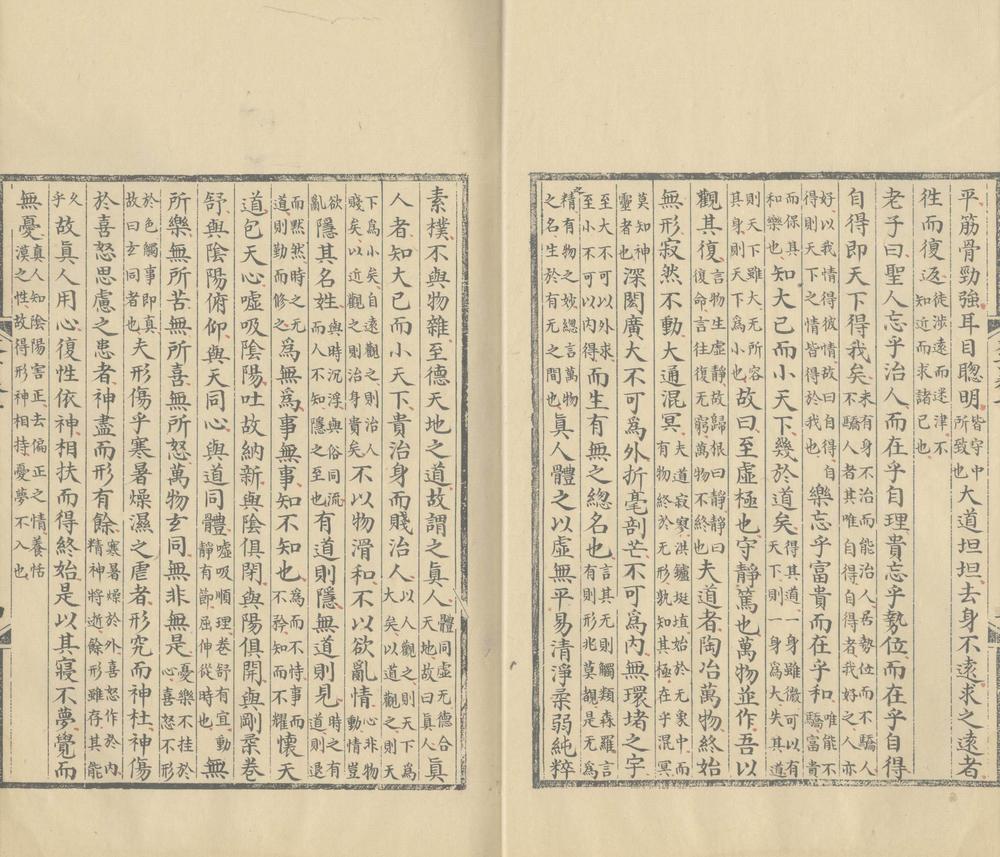 平筋骨勁強耳目聰明皆守中所致也大道坦坦去身不遠求之遠者
徃而復返徒涉遠而迷津不知近而求諸己也
老子曰聖人忘乎治人而在乎自理貴忘乎勢位而在乎自得
自得即天下得我矣未有身不治而能治人居勢位而不驕人不驕人者其唯自得自得者我好之人亦
好以我情得彼情故曰自得自得則天下之情皆得於我也樂忘乎富貴而在乎和唯能不驕富貴
而保其和樂也知大己而小天下幾於道矣得其道一身雖微可以有天下則一身為大失其道
則天下雖大无所容其身則天下為小也故曰至虛極也守靜篤也萬物並作吾以
觀其復言物生虛靜故歸根曰靜靜曰復命言往復无窮萬物不終也夫道者陶冶萬物終始
無形寂然不動大通混冥夫道寂寥洪鑪埏埴始於无象中而有物終於无形孰知其極在乎混冥
莫知神靈者也深閎廣大不可為外折毫剖芒不可為內無環堵之宇
至大不可以外求至小不可以內得而生有無之緫名也言其无則觸類森羅言有則形兆莫覩是无為
之精有物之妙緫言萬物之名生於有无之間也真人體之以虛無平易清淨柔弱純粹
素樸不與物雜至德天地之道故謂之真人體同虛无德合天地故曰真人真
人者知大己而小天下貴治身而賤治人以人觀之則天下為大矣以道觀之則天
下為小矣自遠觀之則治人賤矣以近觀之則治身貴矣不以物滑和不以欲亂情心非物動情豈
欲亂隱其名姓與時沉浮與俗同流而人不知隱之至也有道則隱無道則見時之有道則退
而黙然時之无道則勤而修之為無為事無事知不知也為而不恃事而不矜知而不耀懷天
道包天心噓吸陰陽吐故納新與陰俱閉與陽俱開與剛柔卷
舒與陰陽俯仰與天同心與道同體噓吸順理卷舒有宜動靜有節屈伸從時也無
所樂無所苦無所喜無所怒萬物玄同無非無是憂樂不挂於心喜怒不形
於色觸事即真故曰玄同者也夫形傷乎寒暑燥濕之虐者形究而神杜神傷
於喜怒思慮之患者神盡而形有餘寒暑燥於外喜怒作於內精神將逝餘形雖存其能
久乎故真人用心復性依神相扶而得終始是以其寢不夢覺而
無憂真人知陰陽害正去偏正之情養恬漠之性故得形神相持憂夢不入也